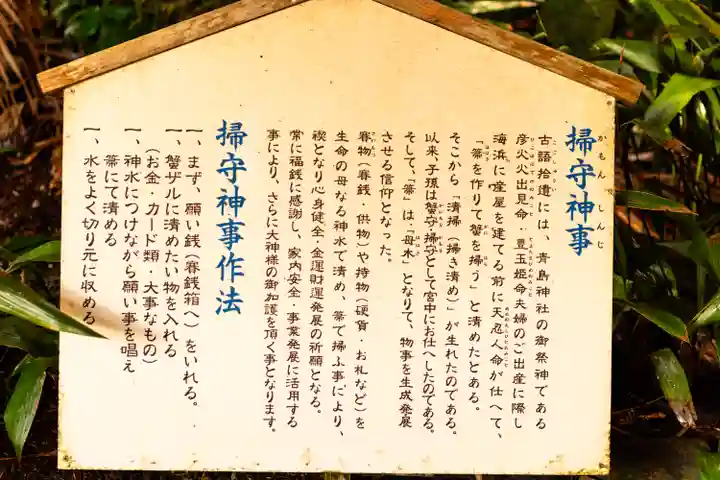 掃守神事
かもん しんじ
古語拾遺には、青島神社の御祭神である
彦火火出見命・豊玉姫命夫婦のご出産に際し
海浜に産屋を建てる前に天忍人命が仕へて、
「箒を作りて蟹を掃う」と清めたとある。
そこから「清掃(掃き清め)」が生れたのである。
以来、子孫は蟹守掃守として宮中にお仕へしたのである。
そして、「箒」は「母木」となりて、物事を生成発展
させる信仰となった。
賽物(賽銭・供物)や持物(硬貨・お札など)を
生命の母なる神水で清め、箒で掃ふ事により、
禊となり心身健全・金運財運発展の祈願となる。
常に福銭に感謝し、家内安全・事業発展に活用する
事により、さらに大神様の御加護を頂く事となります。
掃守神事作法
一、まず、願い銭(賽銭箱へ)をいれる。
一、蟹ザルに清めたい物を入れる
(お金・カード類・大事なもの)
一、神水につけながら願い事を唱え
箒にて清める
一、水をよく切り元に収める